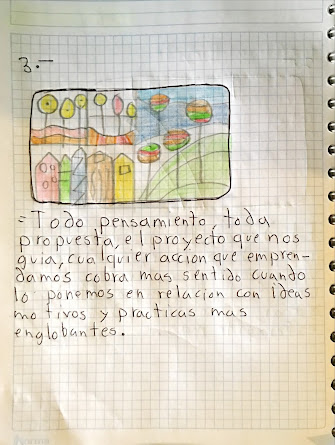 3.-
= Todo pensamiento, toda
propuesta, el proyecto que nos
guia, cualquier acción que empren-
damos cobra mas sentido cuando
lo ponemos en relacion con ideas
motivos y practicas mas
englobantes.
Norma